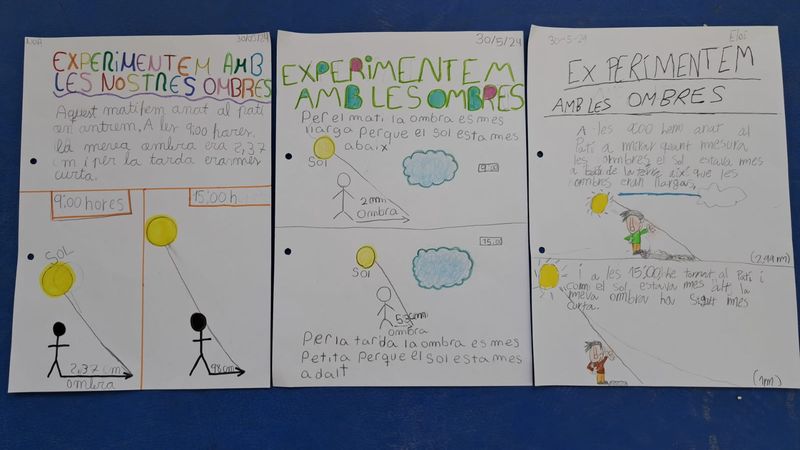 NOA
30/05/24
EXPERIMENTEM AMB
LES NOSTRES OMBRES
Aquest matifem anat al pati
en antrem. A les 9:00 hores.
la meva ombra era 2,37
m i per la tarda era mes
curta.
9:00 hores
15:00 h
SOL
2,37 cm
ombra
98 cm
30/5/24
EXPERIMENTEM
AMB LES OMBRES
Per el mati la ombra es mes
llarga perque el sol esta mes
abaix
SOL
9:00
2 mm
Ombra
15:0
SOl
53 cm
ombra
Per la tarda la ombra es mes
Petita perque el sol esta mes
adalt
30-5-24
Eloi
EXPERIMENTEM
AMB LES OMBRES
A les 9:00 hem anat al
Pati a mirar quant mesura
les ombres el sol estava mes
a baix de la terra així que les
ombres eran llargas.
(2,99m)
i a les 15:00 he tornat al Pati i
com el sol estava mes alt la
meva ombra ha sigut mes
curta.
(1m)